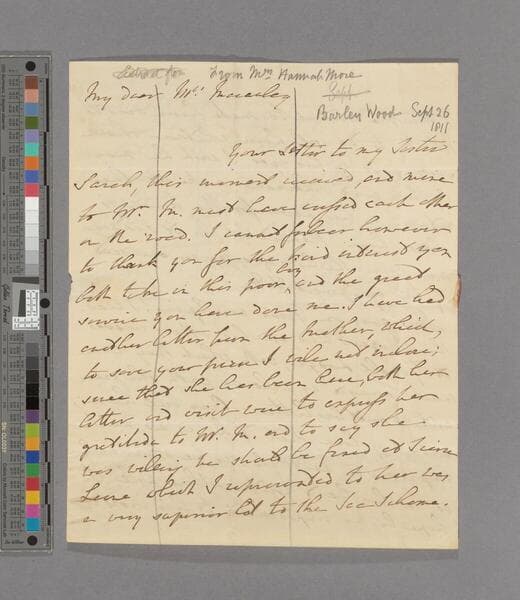 From Mrs Hannah More
My dear Mrs. Macaulay
Barley Wood Sept 26
1811
Your Letter to my Sister
Sarah, this moment received, and mine
to Mr. M. must have crossed each other
on the road. I cannot forbear however
to thank you for the kind interest you
both take in this poor boy, and the great
service you have done me. I have had
another letter from the Mother, which,
to save your purse I will not inclose;
since that she has been here, both her
letter and visit were to express her
gratitude to Mr. M. and to say she
was willing he should be fixed at Sierra
Leone which I represented to her was
a very superior to the Sea Scheme.